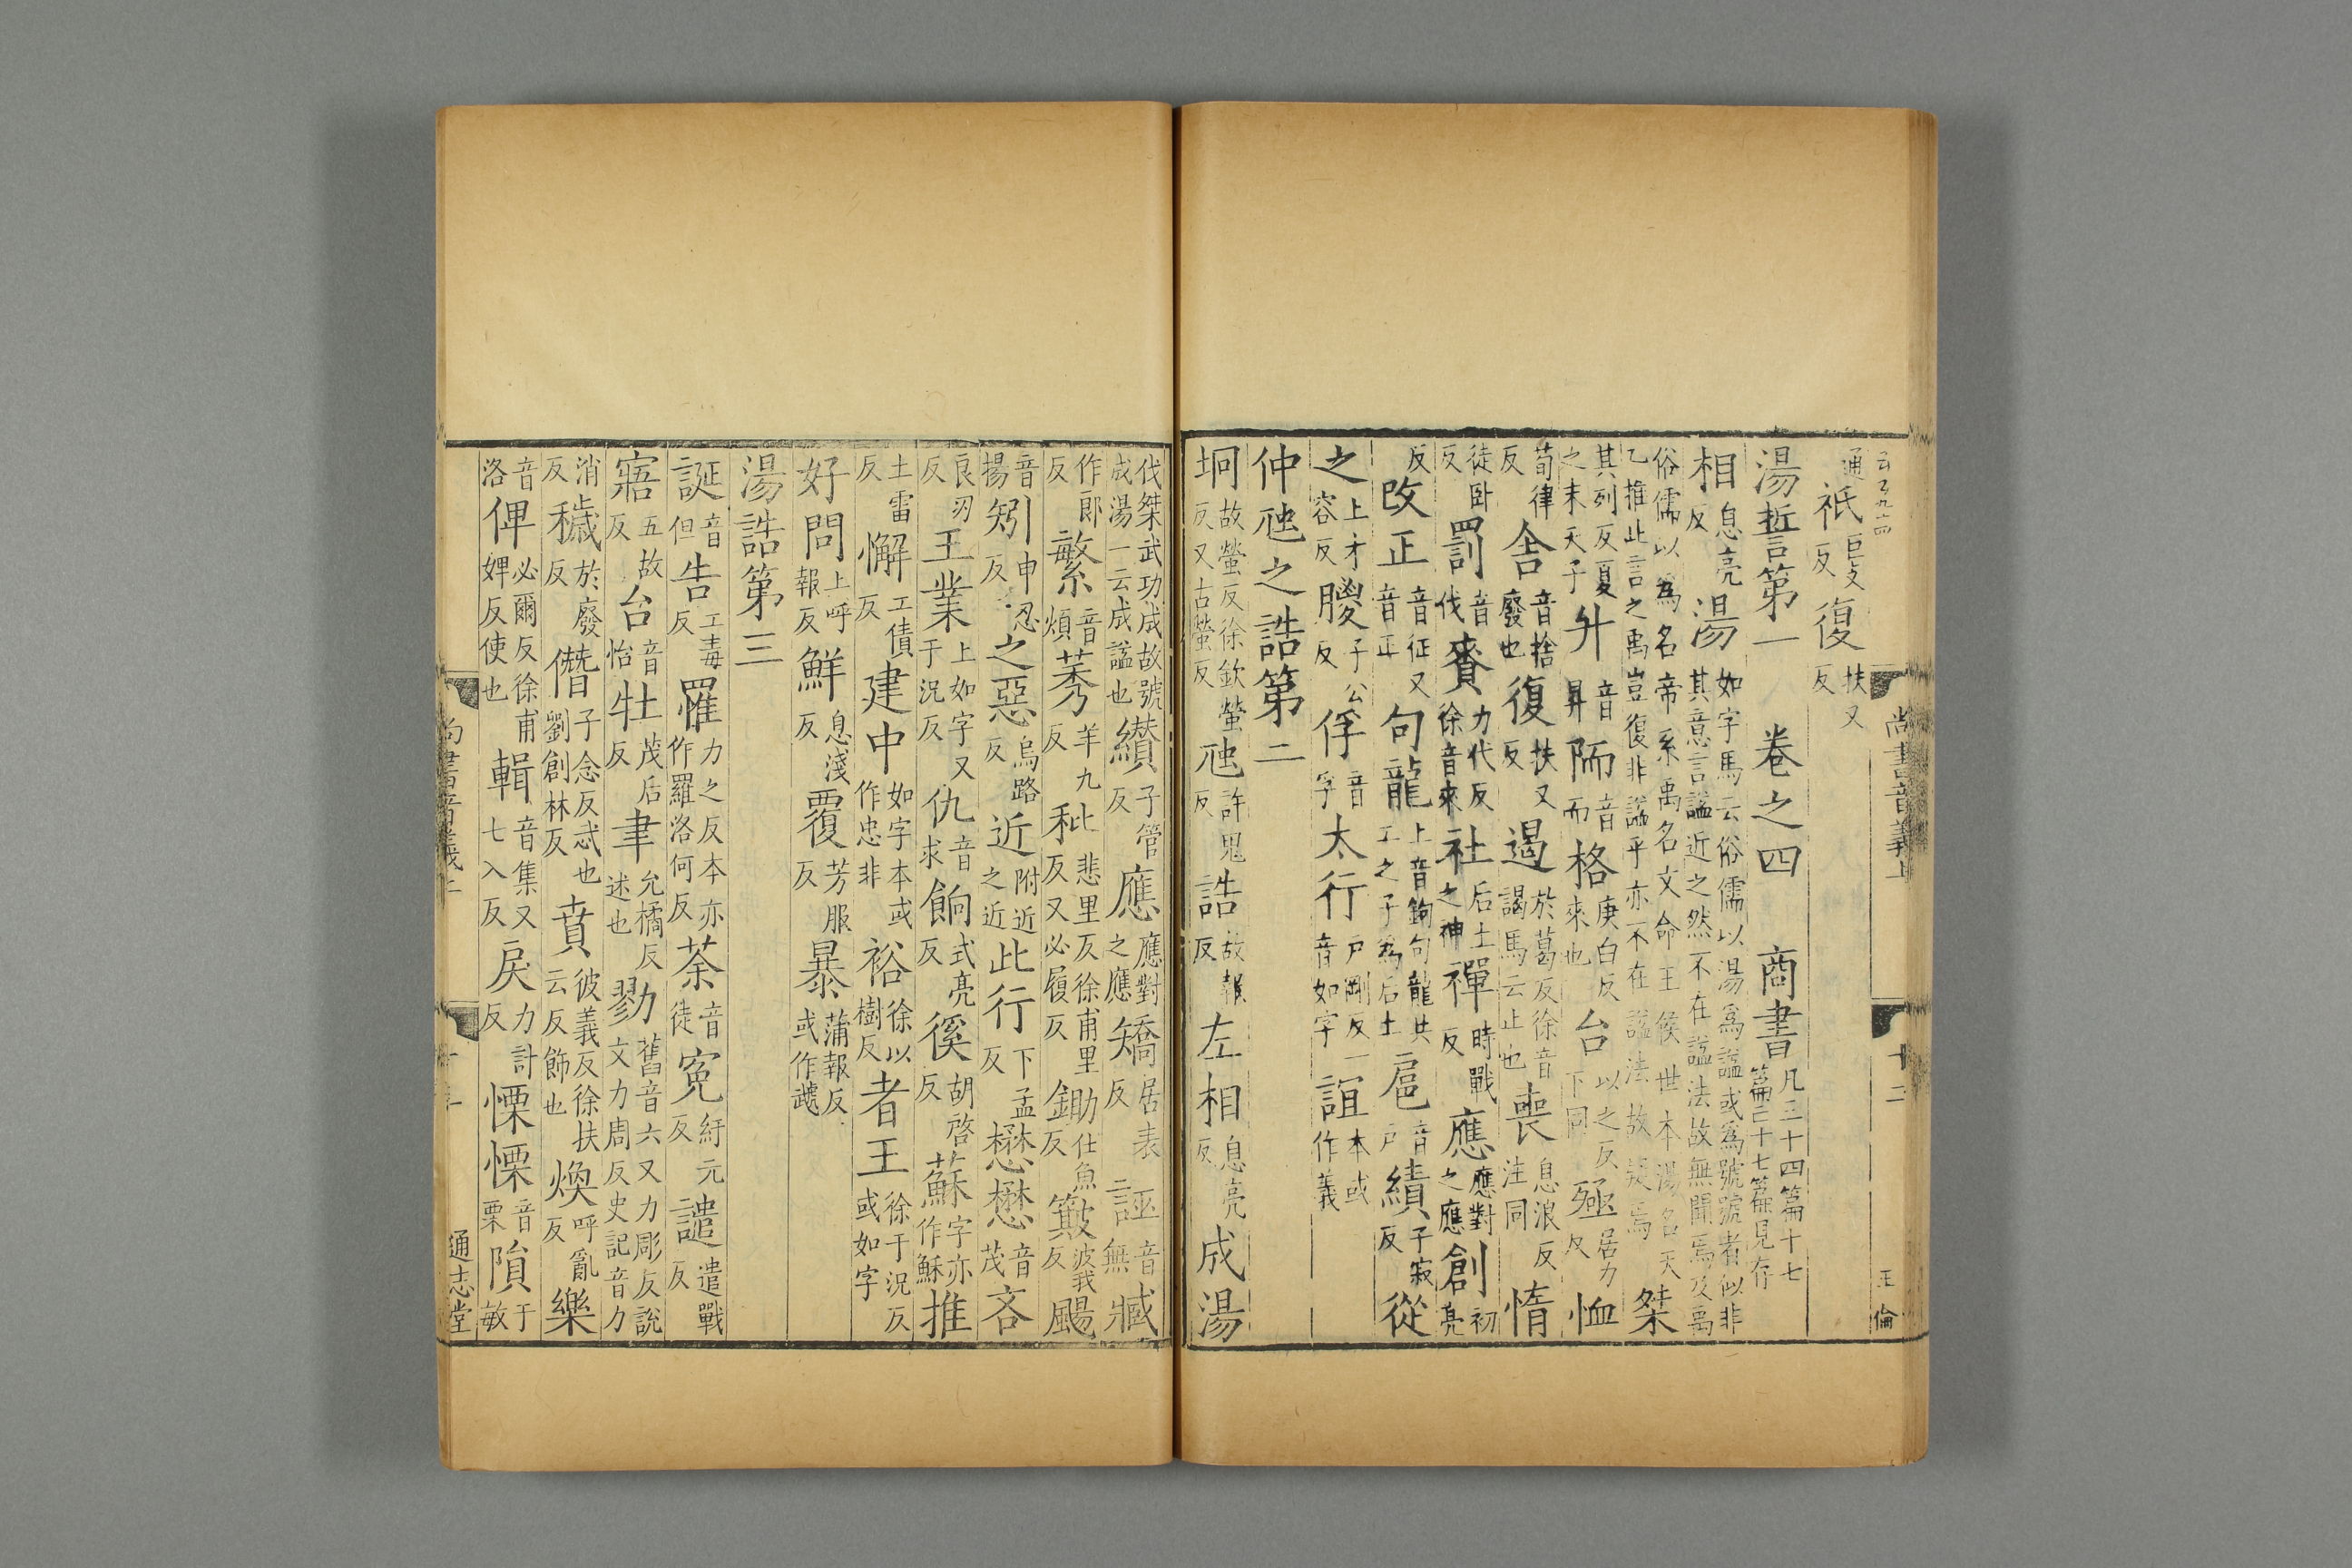 通祇巨支反復扶又反
湯誓第一 卷之四 商書凡三十四篇十七篇亡十七篇見存
相息亮反湯如字馬云俗儒以湯爲謚或爲號號者似非其意言謚近之然不在謚法故無聞焉及禹
俗儒以爲名帝系禹名文命王侯世本湯名天乙推此言之禹豈復非謚乎亦不在謚法故疑焉桀
其列反夏之末天子升音昇陑音而格庚白反來也台以之反下同殛居力反恤
荀律反舍音捨廢也復扶又反遏於葛反徐音謁馬云止也喪息浪反注同惰
徒臥反罰音伐賚力代反徐音來社后土之神禪時戰反應應對之應創初亮
反改正音征又音正句龍上音鉤句龍共工之子爲后土扈音戶績子寂反從
之才容反上朡子公反俘音孚太行戶剛反一音如字誼本或作義
仲虺之誥第二
坰故螢反徐欽螢反又古螢反虺許鬼反誥故報反左相息亮反成湯
伐桀武功成故號成湯一云成謚也纘子管反應應對之應矯居表反誣音無臧
作郎反繁音煩莠羊九反秕悲里反徐甫里反又必履反鋤仕魚反簸波我反颺
音揚矧申忍反之惡烏路反近附近之近此行下孟反懋懋音茂吝
良刃反王業上如字又于況反仇音求餉式亮反徯胡啓反蘇字亦作穌推
土雷反懈工債反建中如字本或作忠非裕徐以樹反者王徐于況反或如字
好問上呼報反鮮息淺反覆芳服反暴蒲報反或作虣
湯誥第三
誕音但告工毒反罹力之反本亦作羅洛何反荼音徒寃紆元反譴遣戰反
寤五故反台音怡牡茂后反聿允橘反述也勠舊音六又力彫反說文力周反史記音力
消反穢於廢反僭子念反忒也劉創林反賁彼義反徐扶云反飾也煥呼亂反樂
音洛俾必爾反徐甫婢反使也輯音集又七入反戾力計反慄慄音栗隕于敏
尚書音義上 十二 王倫
尚書音義上 通志堂